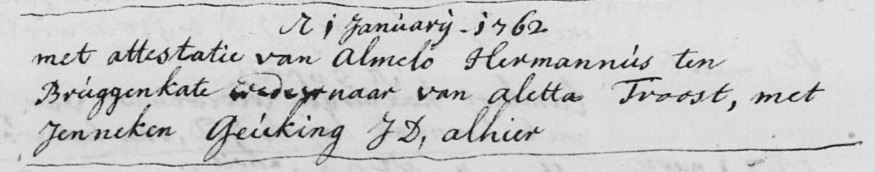 1 January. 1762
met attestatie van Almelo Hermannus ten
Bruggenkate wedewnaar van Aletta Troost, met
Jenneken Geuking JD, alhier